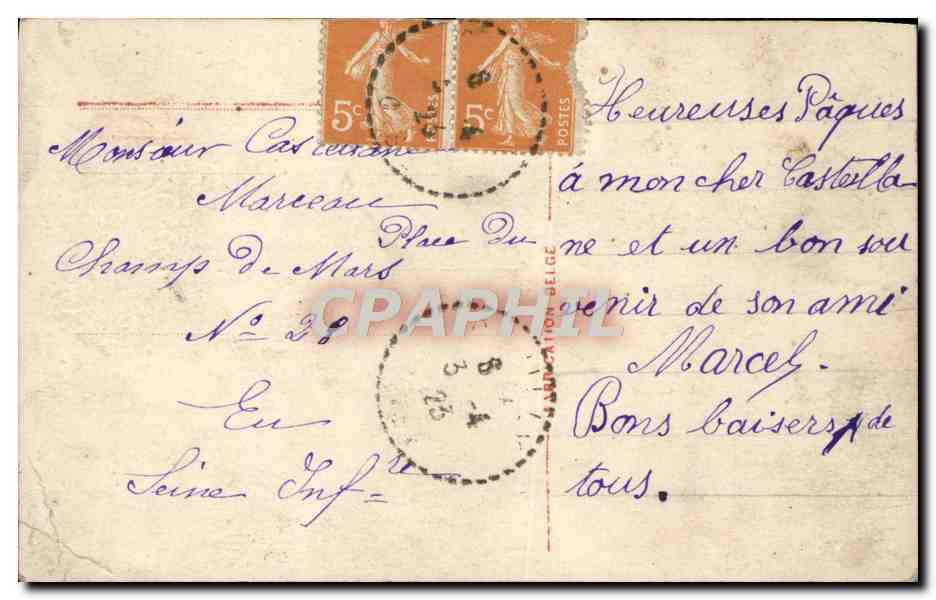 5c
POSTES
5c
POSTES
Monsieur Castellane
Marceau
Place du
Champ de Mars
No 28
Eu
Seine Infre
FABRICATION BELGE
Heureuses Pâques
á mon cher Castella
ne et un bon sou
venir de son ami
Marcel.
Bons baisers de
tous.
8
3 -4
23
CPAPHIL